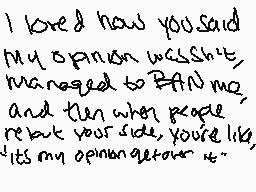 I loved how you said
my opinion was sh*t,
managed to BAN me,
and then when people
rebut your side, you're like,
"its my opinion get over it"